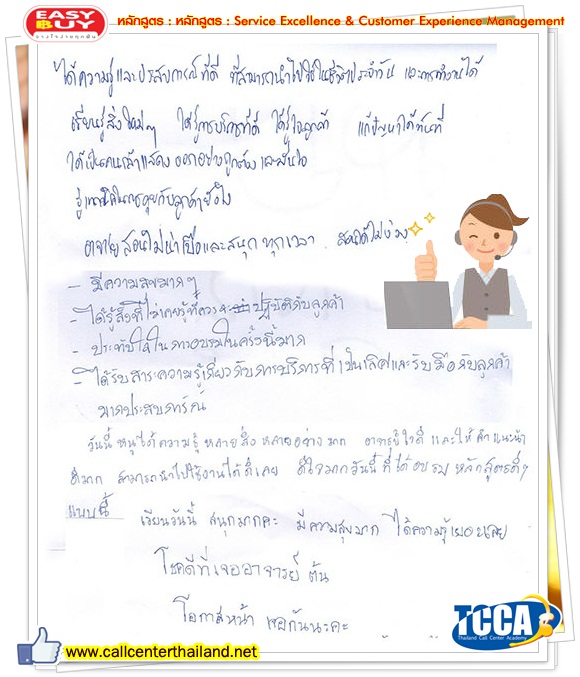 EASY
BUY
วางใจง่ายทุกฝัน
หลักสูตร : หลักสูตร : Service Excellence & Customer Experience Management
ได้ความรู้และประสบการณ์ที่ดี ที่สามารถนำไปใช้ในชีวิตประจำวัน และการทำงานได้
เรียนรู้สิ่งใหม่ๆ ได้รู้การบริการที่ดี ได้รู้ใจลูกค้า แก้ปัญหาได้ทันที
ได้เป็นคนกล้าแสดงออกอย่างถูกต้องและมั่นใจ
รู้เทคนิคในการคุยกับลูกค้ายังไง
อาจารย์สอนไม่น่าเบื่อและสนุกทุกเวลา สอนได้ไม่ง่วง
- มีความสุขมากๆ
- ได้รู้สิ่งที่ไม่เคยรู้ที่ควรจะปฏิบัติกับลูกค้า
- ประทับใจในการอบรมในครั้งนี้มาก
- ได้รับสาระความรู้เกี่ยวกับการบริการที่เป็นเลิศและรับมือกับลูกค้า
มากประสบการณ์
วันนี้หนูได้ความรู้หลายสิ่งหลายอย่างมาก อาจารย์ใจดีและให้คำแนะนำ
ดีมาก สามารถนำไปใช้งานได้ดีเลย ดีใจมากวันนี้ที่ได้อบรมหลักสูตรดีๆ
แบบนี้
เรียนวันนี้ สนุกมากคะ มีความสุขมาก ได้ความรู้เยอะเลย
โชคดีที่เจออาจารย์ ต้น
โอกาสหน้า เจอกันนะคะ
TCCA
Thailand Call Center Academy
www.callcenterthailand.net